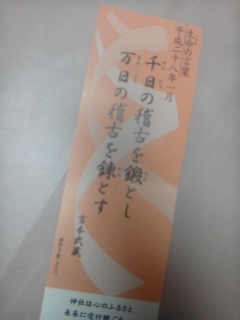 生命の言葉
平成二十八年一月
千日の稽古を鍛とし
万日の稽古を錬とす
宮本武蔵
神社は心のふるさと
未来に受け継ごう